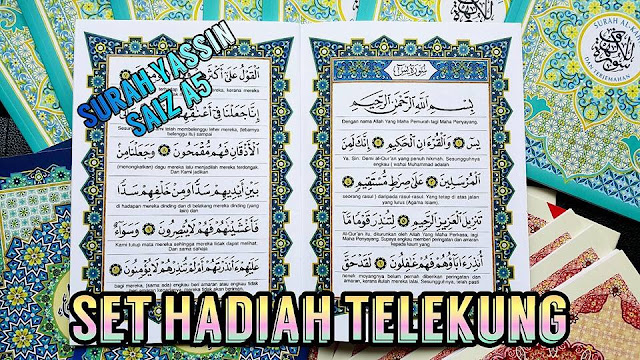 SURAH YASSIN
SAIZ A5
سُورَةُ يسٓ
بِسْمِ اللَّهِ الرَّحْمَٰنِ الرَّحِيمِ
Dengan nama Allah Yang Maha Pemurah lagi Maha Penyayang.
يسٓ وَالْقُرْءَانِ الْحَكِيمِ إِنَّكَ لَمِنَ
Ya, Sin. Demi al-Qur'an yang penuh hikmah. Sesungguhnya
engkau ( wahai Muhammad adalah
الْمُرْسَلِينَ عَلَىٰ صِرَاطٍ مُّسْتَقِيمٍ
seorang rasul ) daripada rasul-rasul. Yang tetap di atas jalan
yang lurus (Agama Islam).
تَنزِيلَ الْعَزِيزِ الرَّحِيمِ لِتُنذِرَ قَوْمًا مَّا
Al-Qur'an itu, diturunkan oleh Allah Yang Maha Perkasa, lagi
Maha Penyayang. Supaya engkau memberi peringatan dan
amaran kepada kaum yang
أُنذِرَ ءَابَاؤُهُمْ فَهُمْ غَافِلُونَ لَقَدْ حَقَّ
nenek moyangnya belum pernah diberikan peringatan dan
amaran, kerana itulah mereka lalai. Sesungguhnya, telah pasti
الْقَوْلُ عَلَىٰ أَكْثَرِ
kerana mereka
إِنَّا جَعَلْنَا فِي أَعْنَاقِهِمْ
telah membelenggu leher mereka, (tertahan
belenggu itu) sampai
الْأَذْقَانِ فَهُم مُّقْمَحُونَ وَجَعَلْنَا مِن
(menongkatkan) dagu mereka lalu menjadilah mereka terdongak.
Dan Kami jadikan
بَيْنِ أَيْدِيهِمْ سَدًّا وَمِنْ خَلْفِهِمْ سَدًّا
di hadapan mereka dinding dan di belakang mereka dinding (yang
lain) dan
فَأَغْشَيْنَاهُمْ فَهُمْ لَا يُبْصِرُونَ وَسَوَاءٌ
Kami tutup mata mereka sehingga mereka tidak dapat melihat.
Dan sama sahaja
عَلَيْهِمْ ءَأَنذَرْتَهُمْ أَمْ لَمْ تُنذِرْهُمْ لَا يُؤْمِنُونَ
bagi mereka, (sama ada) engkau beri amaran atau engkau tidak
SURAH ALWAQ
DAN TERJEMAHAN
SET HADIAH TELEKUNG